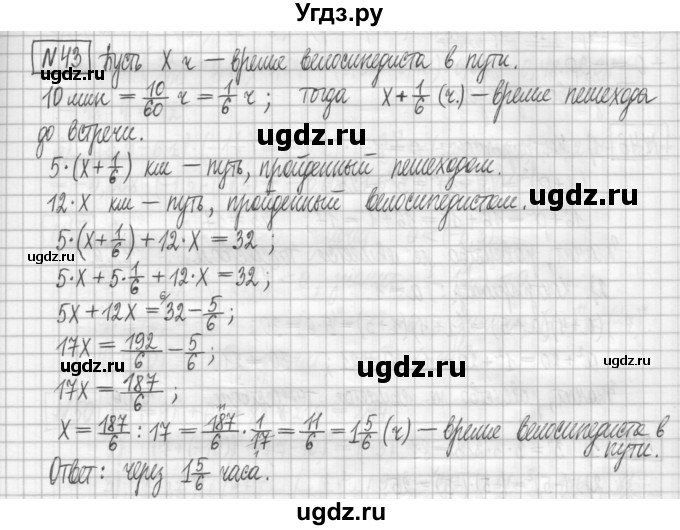 Угдз.ру
№43 Пусть x ч — время велосипедиста в пути.
10 мин = 10/60 ч = 1/6 ч ; тогда x + 1/6 (ч.) — время пешехода
до встречи.
ugdz.ru
5·(x + 1/6) км — путь, пройденный пешеходом.
ugdz.ru
12·x км — путь, пройденный велосипедистом.
5·(x + 1/6) + 12·x = 32 ;
ugdz.ru
5·x + 5·1/6 + 12·x = 32 ;
ugdz.ru
5x + 12x = 32 - 5/6 ;
17x = 192/6 - 5/6 ;
ugdz.ru ugdz.ru ugdz.ru
17x = 187/6 ;
x = 187/6 : 17 = 187/6 · 1/17 = 11/6 = 1 5/6 (ч) — время велосипедиста в
пути.
Ответ: через 1 5/6 часа.
ugdz.ru ugdz.ru
ugdz.ru